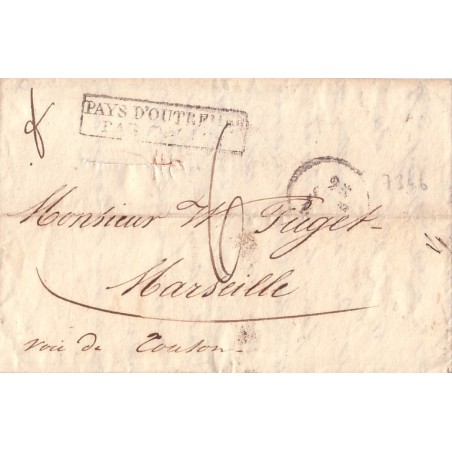 PAYS D'OUTREMER
PAR
7346
Monsieur W Puget
Marseille
voie de Toulon